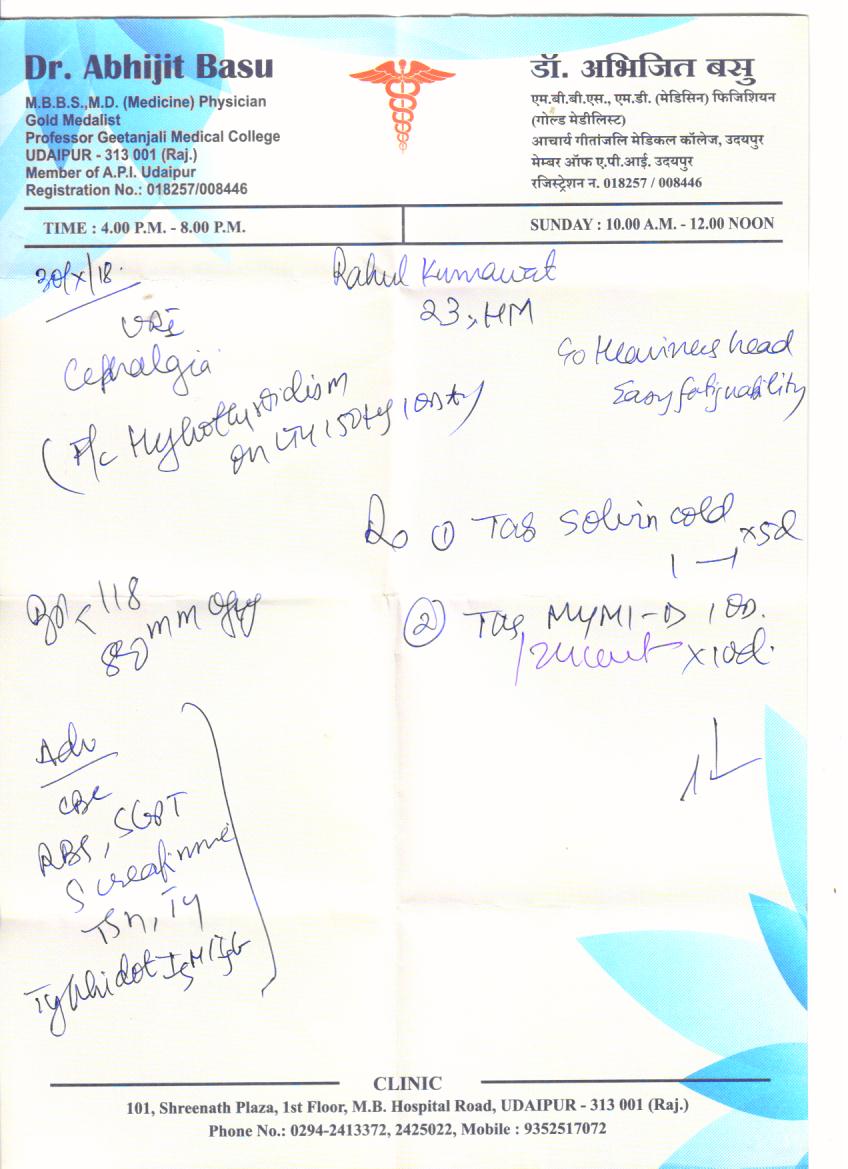 Dr. Abhijit Basu
M.B.B.S.,M.D. (Medicine) Physician
Gold Medalist
Professor Geetanjali Medical College
UDAIPUR - 313 001 (Raj.)
Member of A.P.I. Udaipur
Registration No.: 018257/008446
डॉ. अभिजित बसु
एम.बी.बी.एस., एम.डी. (मेडिसिन) फिजिशियन
(गोल्ड मेडीलिस्ट)
आचार्य गीतांजलि मेडिकल कॉलेज, उदयपुर
मेम्बर ऑफ ए.पी.आई. उदयपुर
रजिस्ट्रेशन न. 018257 / 008446
TIME : 4.00 P.M. - 8.00 P.M.
SUNDAY : 10.00 A.M. - 12.00 NOON
30/X/18.
Rahul Kumawat
23,
URI
Cephalgia
Heaviness head
Easy fatiguability
(
Hypothyroidism
on
① Tab Solvin cold x5d
1 - 1
BP < 118
80 mm
② Tab MYMI-D 1 OD.
x10d.
Adv
CBC
RBS, SGPT
S creatinine
TSH, T4
Typhidot IgM/IgG
CLINIC
101, Shreenath Plaza, 1st Floor, M.B. Hospital Road, UDAIPUR - 313 001 (Raj.)
Phone No.: 0294-2413372, 2425022, Mobile : 9352517072